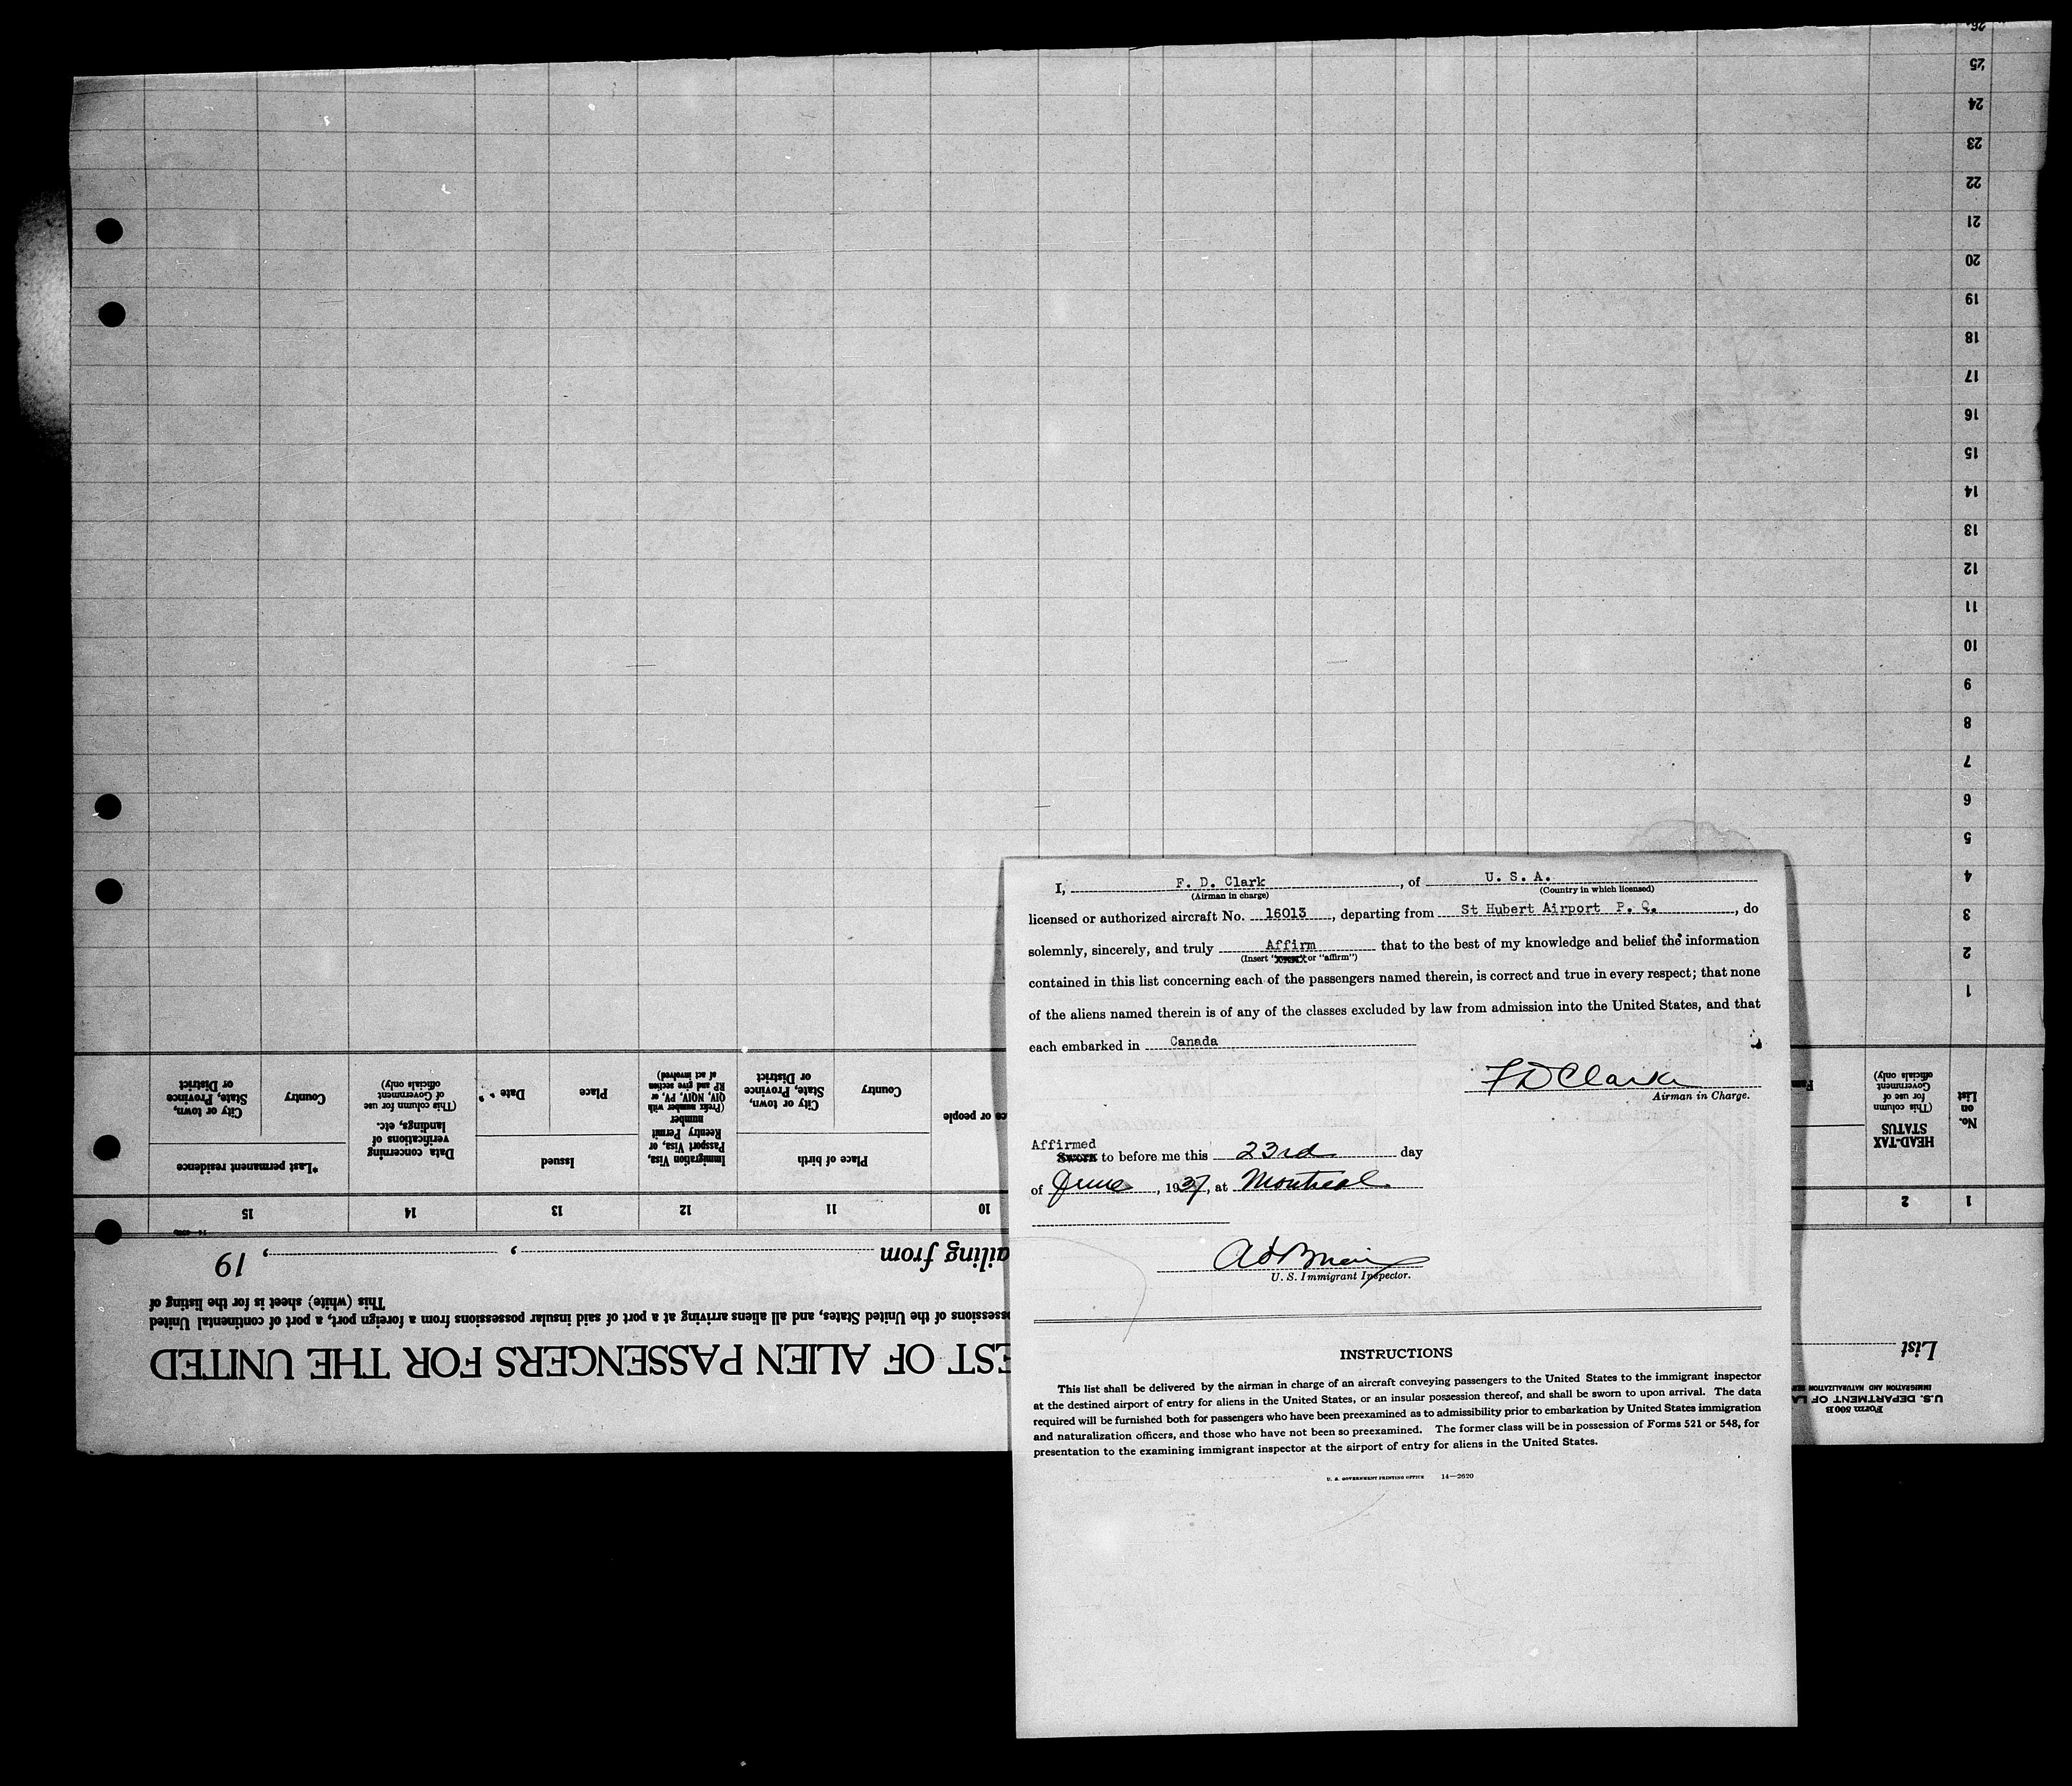 I, F. D. Clark, of U. S. A.
(Airman in charge) (Country in which licensed)
licensed or authorized aircraft No. 16013, departing from St Hubert Airport P. Q., do
solemnly, sincerely, and truly Affirm that to the best of my knowledge and belief the information
(Insert " or "affirm")
contained in this list concerning each of the passengers named therein, is correct and true in every respect; that none
of the aliens named therein is of any of the classes excluded by law from admission into the United States, and that
each embarked in Canada
F D Clark
Airman in Charge.
Affirmed
Sworn to before me this 23rd day
of June, 1937, at Montreal.
U. S. Immigrant Inspector.
INSTRUCTIONS
This list shall be delivered by the airman in charge of an aircraft conveying passengers to the United States to the immigrant inspector
at the destined airport of entry for aliens in the United States, or an insular possession thereof, and shall be sworn to upon arrival. The data
required will be furnished both for passengers who have been preexamined as to admissibility prior to embarkation by United States immigration
and naturalization officers, and those who have not been so preexamined. The former class will be in possession of Forms 521 or 548, for
presentation to the examining immigrant inspector at the airport of entry for aliens in the United States.
U. S. GOVERNMENT PRINTING OFFICE 14—2620
Form 500B
U.S. DEPARTMENT OF LA
IMMIGRATION AND NATURALIZATION SER
List
EST OF ALIEN PASSENGERS FOR THE UNITED
ossessions of the United States, and all aliens arriving at a port of said insular possessions from a foreign port, a port of continental United
This (white) sheet is for the listing of
ailing from , , 19
1 2 10 11 12 13 14 15
No.
on
List
HEAD-TAX
STATUS
(This column
for use of
Government
officials only)
Fam
ce or people
Place of birth
Country
City or town,
State, Province
or District
Immigration Visa,
Passport Visa, or
Reentry Permit
number
(Prefix number with
QIV, NQIV, PV, or
RP and give section
of act involved)
Issued
Place
Date
Data concerning
verifications of
landings, etc.
(This column for use
of Government
officials only)
*Last permanent residence
Country
City or town,
State, Province
or District
1
2
3
4
5
6
7
8
9
10
11
12
13
14
15
16
17
18
19
20
21
22
23
24
25
26